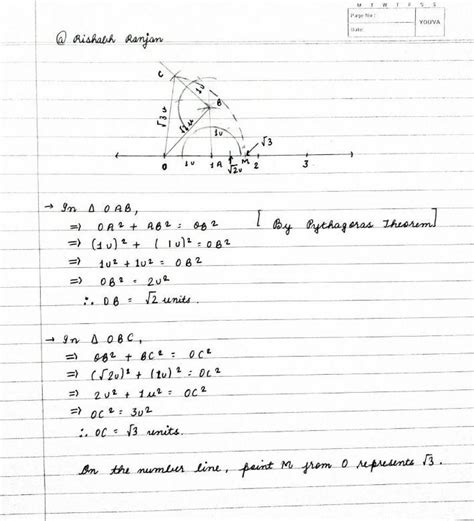 M T W T F S S
Page No.:
YOUVA
Date:
@ Rishabh Ranjan
C
1u
B
√3 u
√2 u
1u
√3
0 1u 1A √2u M 2 3
→ In Δ OAB,
⇒ OA² + AB² = OB² [By Pythagoras Theorem]
⇒ (1u)² + (1u)² = OB²
⇒ 1u² + 1u² = OB²
⇒ OB² = 2u²
∴ OB = √2 units.
→ In Δ OBC,
⇒ OB² + BC² = OC²
⇒ (√2u)² + (1u)² = OC²
⇒ 2u² + 1u² = OC²
⇒ OC² = 3u²
∴ OC = √3 units.
On the number line, point M from O represents √3.